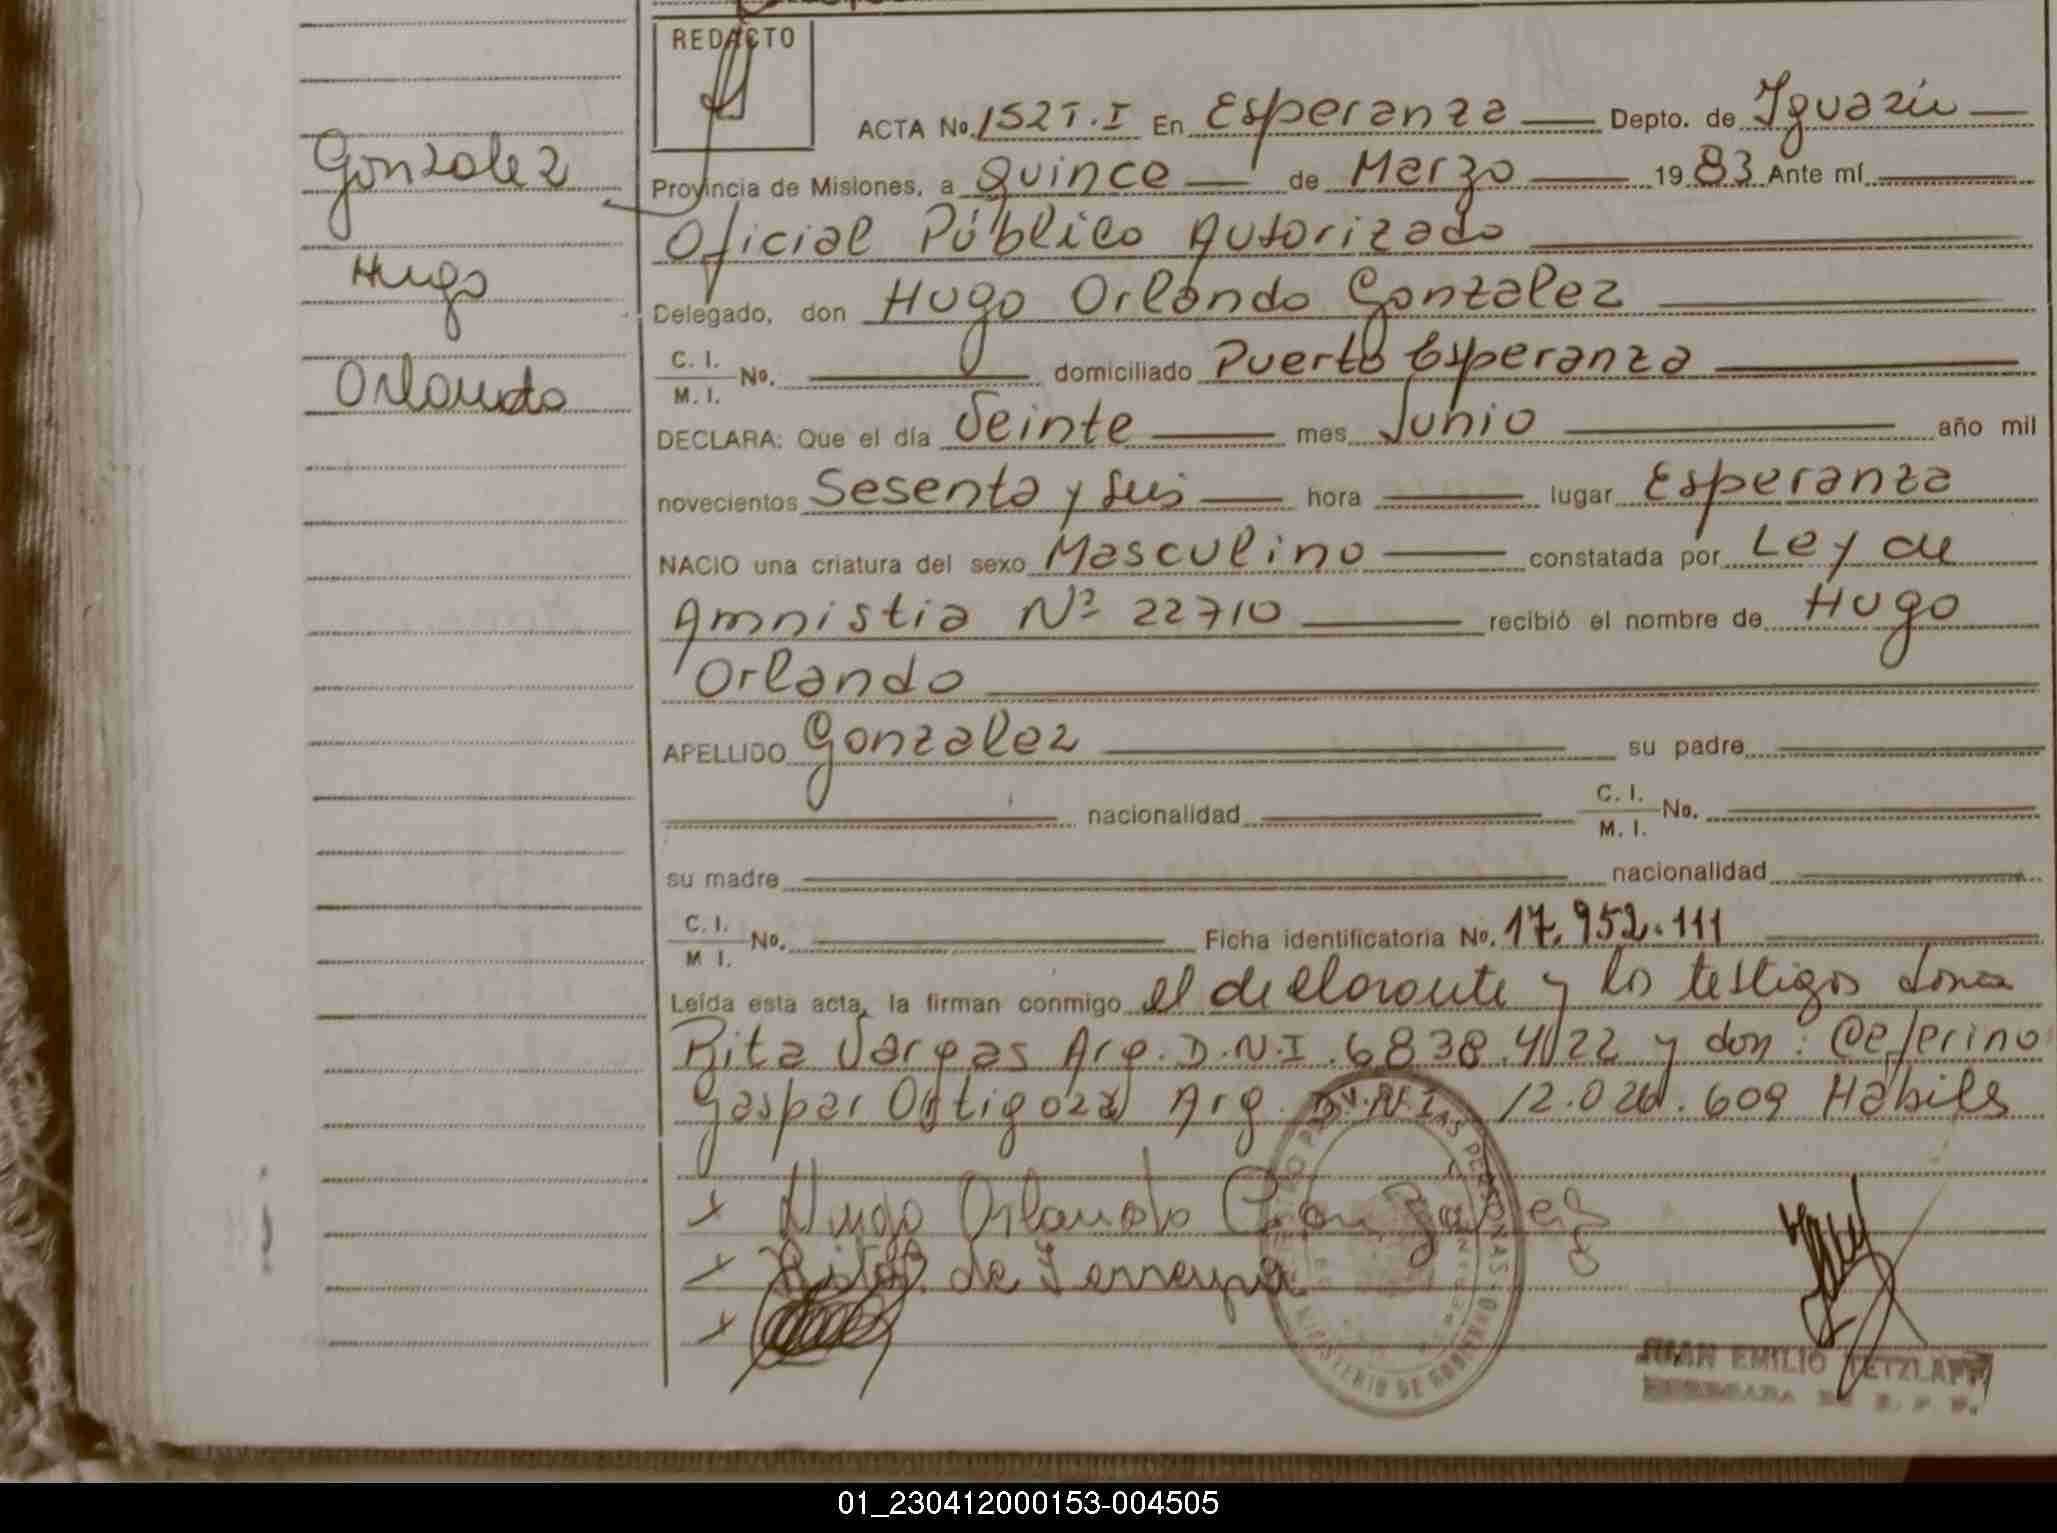 REDACTO
ACTA No. 152 T. I En Esperanza Depto. de Iguazú
Gonzalez
Provincia de Misiones, a quince de Marzo 1983 Ante mí
Oficial Público Autorizado
Hugo
Delegado, don Hugo Orlando Gonzalez
C. I. M. I. No. domiciliado Puerto Esperanza
Orlando
DECLARA: Que el día Veinte mes Junio año mil
novecientos Sesenta y Seis hora lugar Esperanza
NACIO una criatura del sexo Masculino constatada por Ley de
Amnistia Nº 22710 recibió el nombre de Hugo
Orlando
APELLIDO Gonzalez su padre
nacionalidad C. I. M. I. No.
su madre nacionalidad
C. I. M I. No. Ficha identificatoria No. 17.952.111
Leída esta acta, la firman conmigo el declarante y los testigos dona
Rita Vargas Arg. D.N.I. 6838.422 y don: Ceferino
Gaspar Ortigoza Arg. D.N.I. 12.026.609 Habiles
x Hugo Orlando Gonzalez
x Rita de
x
PERSONAS
MINISTERIO DE GOBIERNO
JUAN EMILIO TETZLAFF
01_230412000153-004505